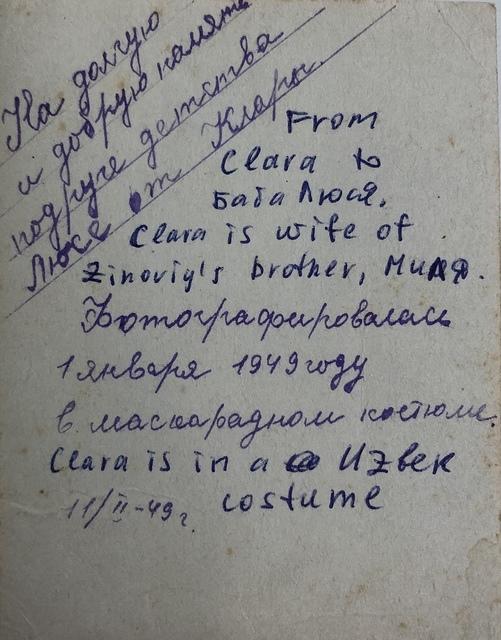 На долгую
и добрую память
подруге детства
Люсе от Клары.
From
Clara to
Баба Люся.
Clara is wife of
Zinoviy's brother, Миля.
Фотографировалась
1 января 1949 году
в маскарадном костюме.
Clara is in a Uzbek
costume
11/II-49 г.